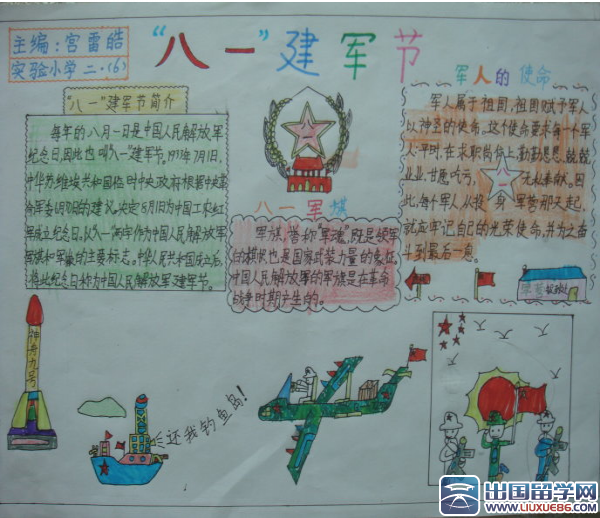 主编:宫雷皓
实验小学二·(6)
“八一”建军节
“八一”建军节简介
每年的八月一日是中国人民解放军
纪念日,因此也叫“八一”建军节。1933年7月1日,
中华苏维埃共和国临时中央政府根据中央革
命军委6月30日的建议,决定8月1日为中国工农红
军成立纪念日。以“八一”两字作为中国人民解放军
军旗和军徽的主要标志。中华人民共和国成立后,
将此纪念日称为中国人民解放军建军节。
八一
八一军旗
军旗,誉称“军魂”,既是领军
的标识也是国家武装力量的象征
中国人民解放军的军旗是在革命
战争时期产生的。
军人的使命
军人属于祖国,祖国赋予军人
以神圣的使命。这个使命要求每一个军
人平时,在求职岗位上,勤勤恳恳,兢兢
业业,甘愿吃亏,无私奉献。因
此,每个军人从投身军营那天起,
就应牢记自己的光荣使命,并为之奋
斗到最后一息。
神舟九号
还我钓鱼岛!
出国留学网
WWW.LIUXUE86.COM